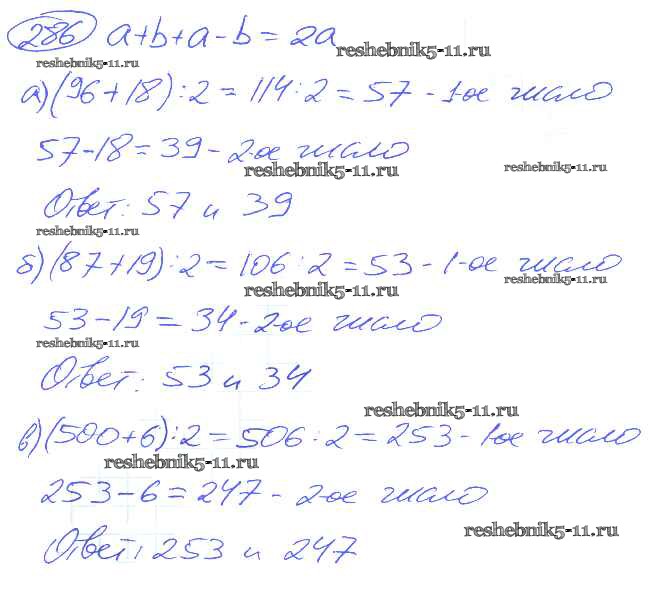 286 a+b+a-b=2a
reshebnik5-11.ru
reshebnik5-11.ru
а) (96+18):2=114:2=57 - 1-ое число
57-18=39 - 2-ое число
reshebnik5-11.ru
reshebnik5-11.ru
Ответ: 57 и 39
reshebnik5-11.ru
б) (87+19):2=106:2=53 - 1-ое число
reshebnik5-11.ru
reshebnik5-11.ru
53-19=34 - 2-ое число
reshebnik5-11.ru
Ответ: 53 и 34
reshebnik5-11.ru
в) (500+6):2=506:2=253 - 1-ое число
reshebnik5-11.ru
253-6=247 - 2-ое число
reshebnik5-11.ru
Ответ: 253 и 247